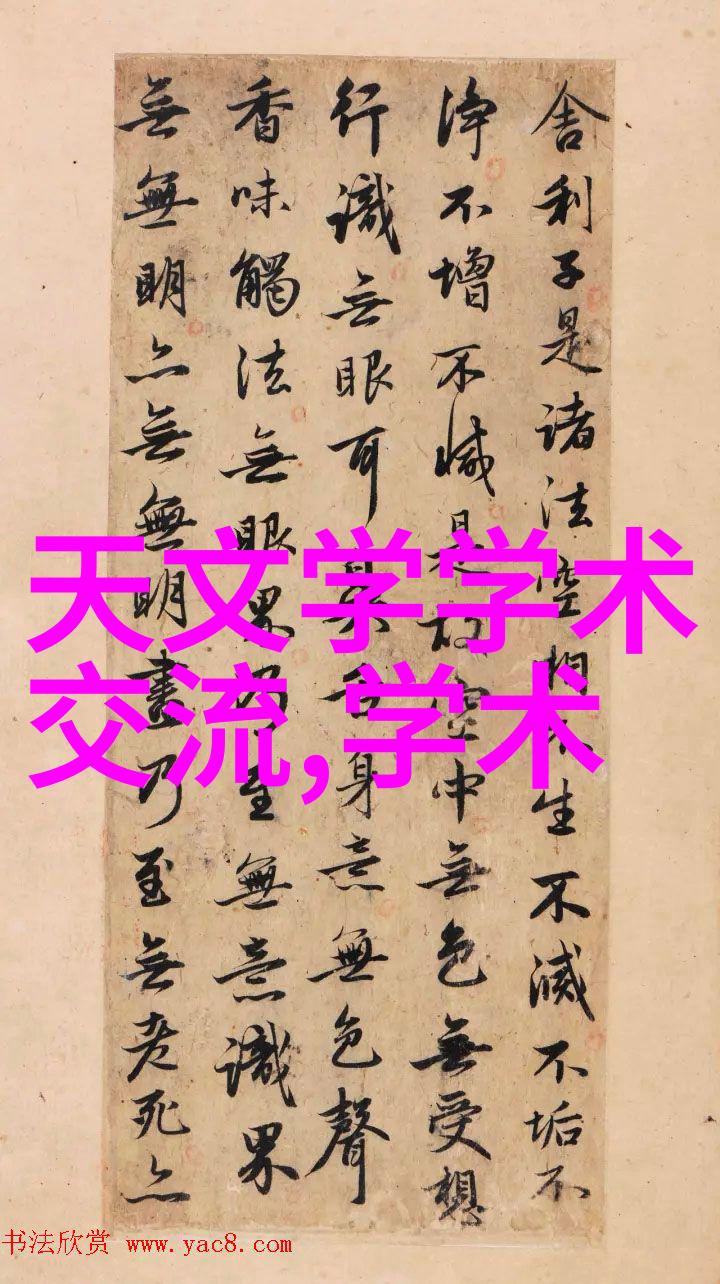 舍利子是諸法空相不生不滅不垢不
淨不增不減是故空中無色無受想
行識無眼耳鼻舌身意無色聲
香味觸法無眼界乃至無意識界
無無明亦無無明盡乃至無老死亦
天文学学术
交流,学术
书法欣赏 www.yac8.com